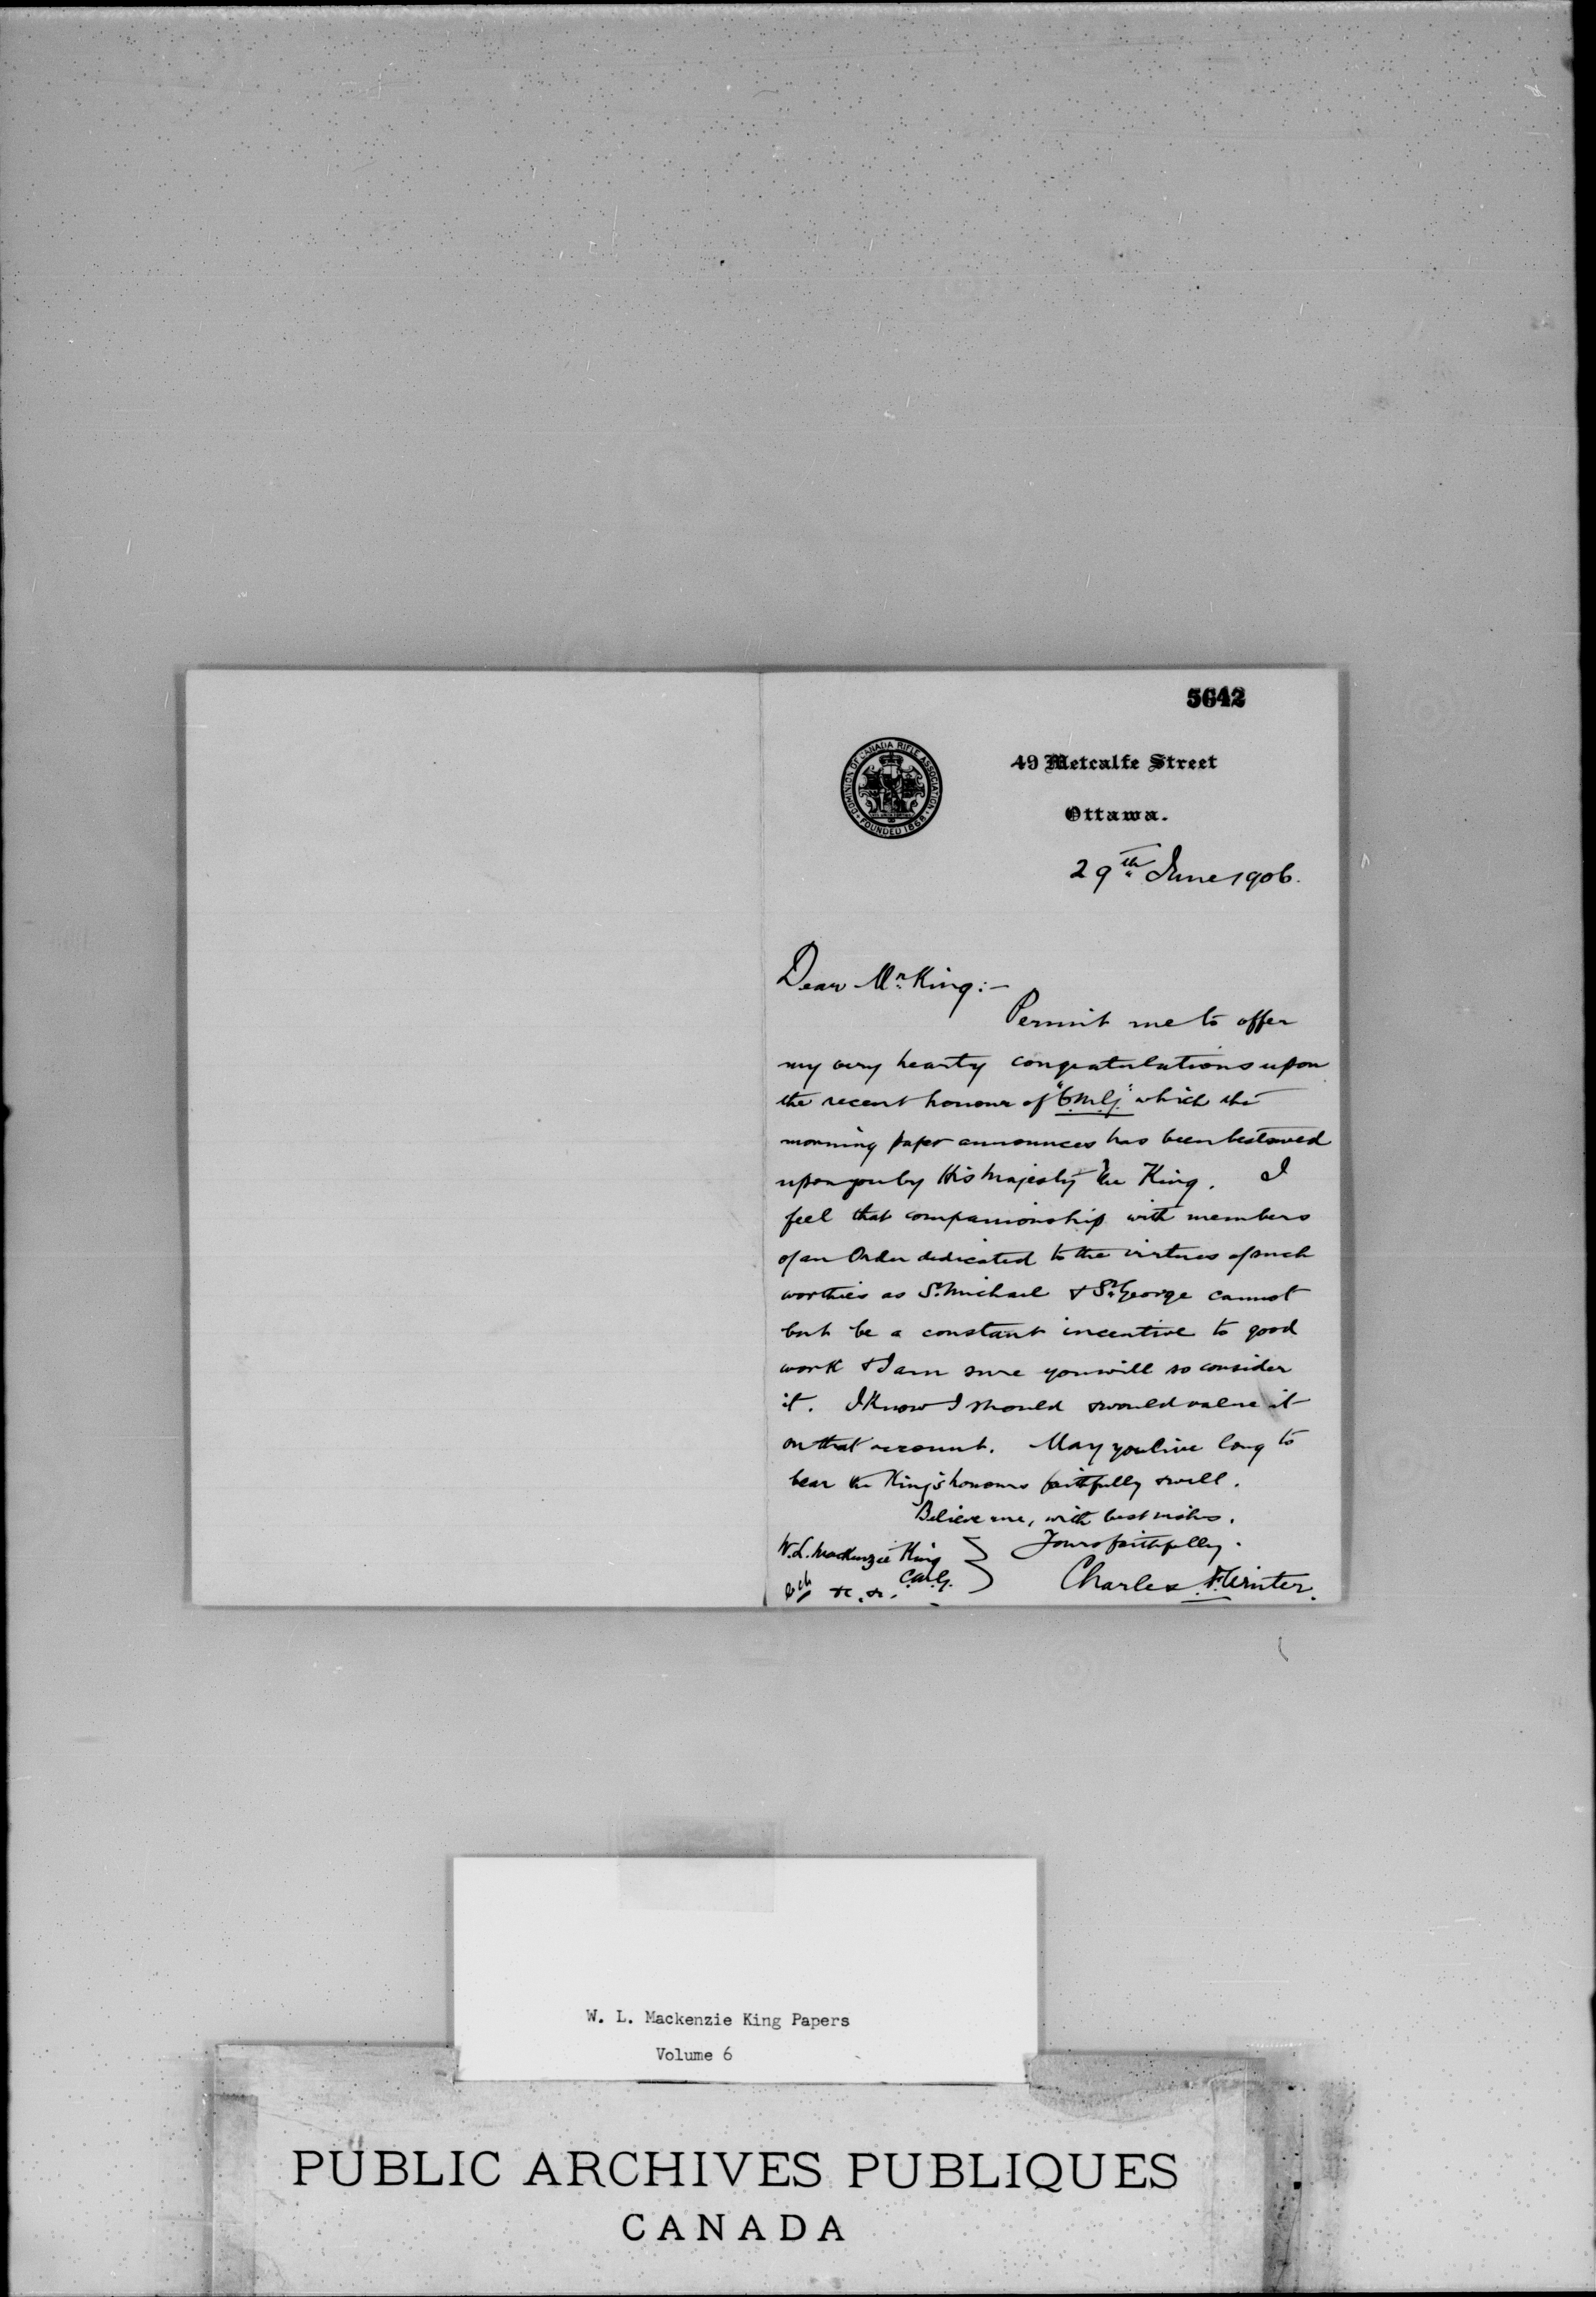 5642
DOMINION OF CANADA RIFLE ASSOCIATION
FOUNDED 1868
49 Metcalfe Street
Ottawa.
29th June 1906.
Dear Mr. King:-
Permit me to offer
my very hearty congratulations upon
the recent honour of "C.M.G." which the
morning paper announces has been bestowed
upon you by His Majesty the King. I
feel that companionship with members
of an Order dedicated to the virtues of such
worthies as St. Michael & St. George cannot
but be a constant incentive to good
work & I am sure you will so consider
it. I know I should & would value it
on that account. May you live long to
bear the King's honours faithfully & well.
Believe me, with best wishes.
Yours faithfully.
W. L. MacKenzie King
C.M.G.
&c. &c.
Charles F. Winter.
W. L. Mackenzie King Papers
Volume 6
PUBLIC ARCHIVES PUBLIQUES
CANADA